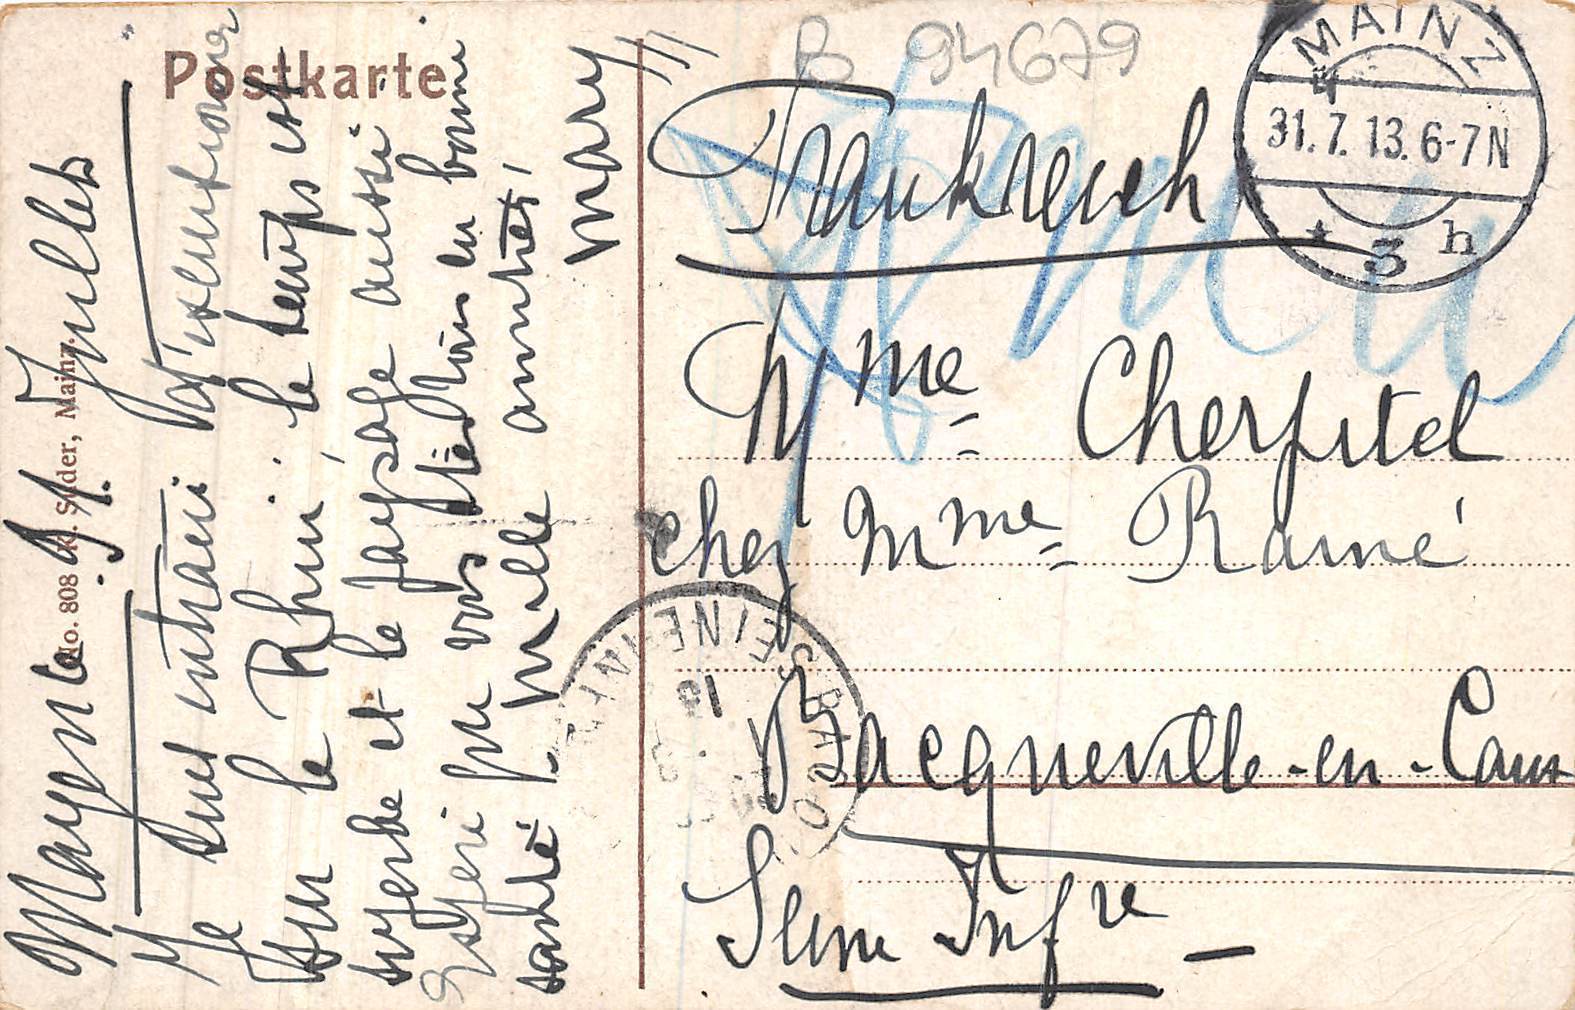 Postkarte
B 94679
MAINZ
31.7.13.6-7N
* 3 h
Frankreich
Mme Cherpitel
chez Mme Ramé
Bacqueville-en-Caux
Seine Infre
No. 808 Kl. Suder, Mainz.
Mayence 31 Juillet
Je suis entrain d'excursionner
sur le Rhin; le temps est
superbe et le paysage aussi
Espère que vous êtes tous en bonne
santé Mille amitiés,
Mary
BACQ
SEINE-INF
13